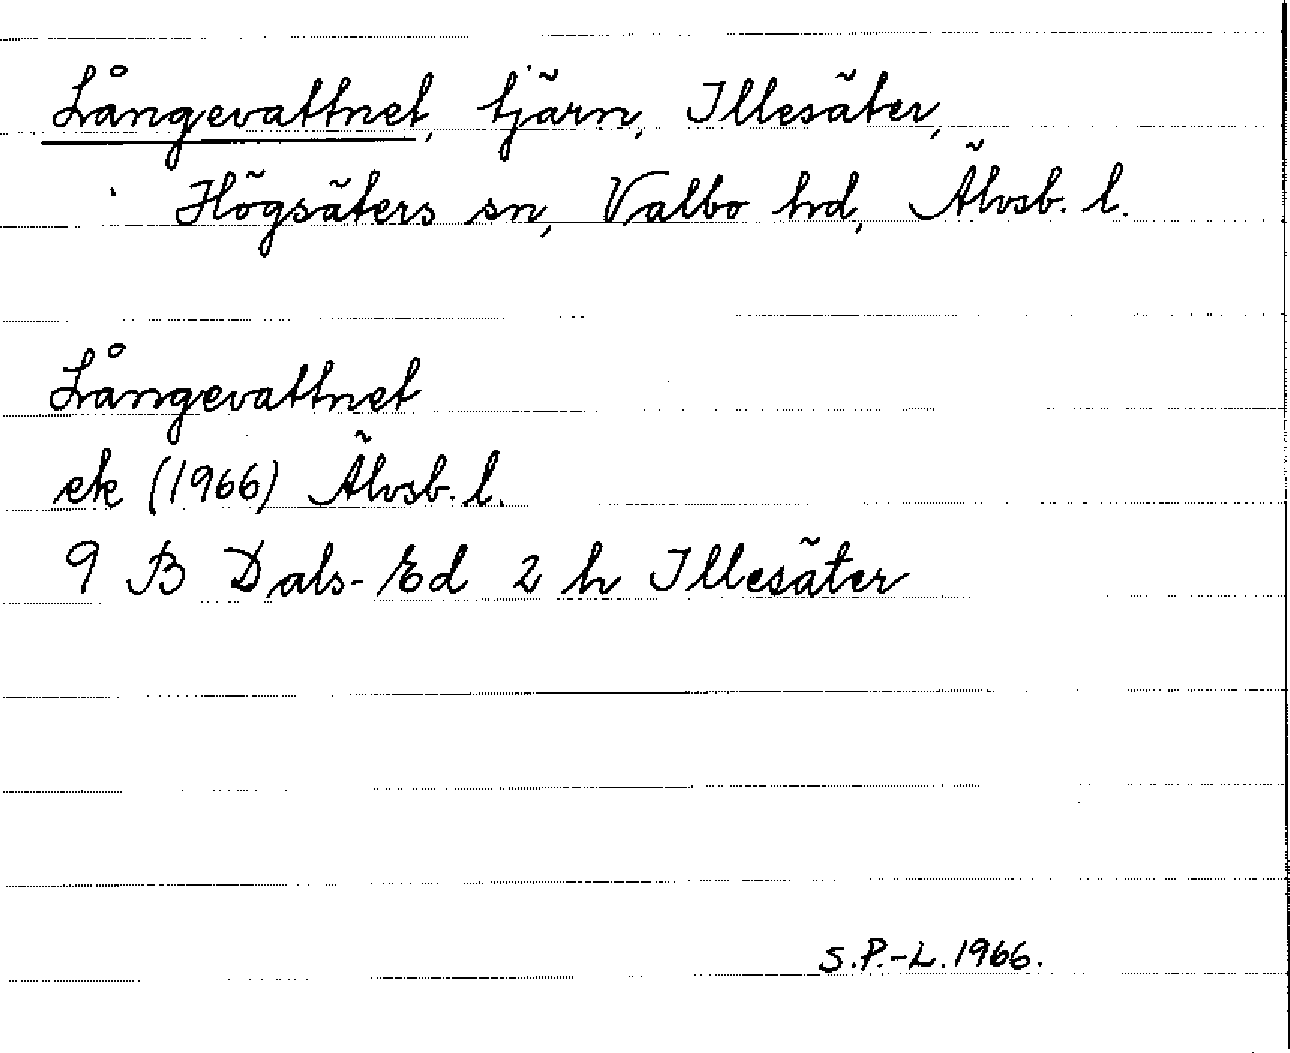 Långevattnet, tjärn, Illesäter,
Högsäters sn, Valbo hd, Älvsb. l.
Långevattnet
ek (1966) Älvsb. l.
9 B Dals-Ed 2 h Illesäter
S.P.-L. 1966.